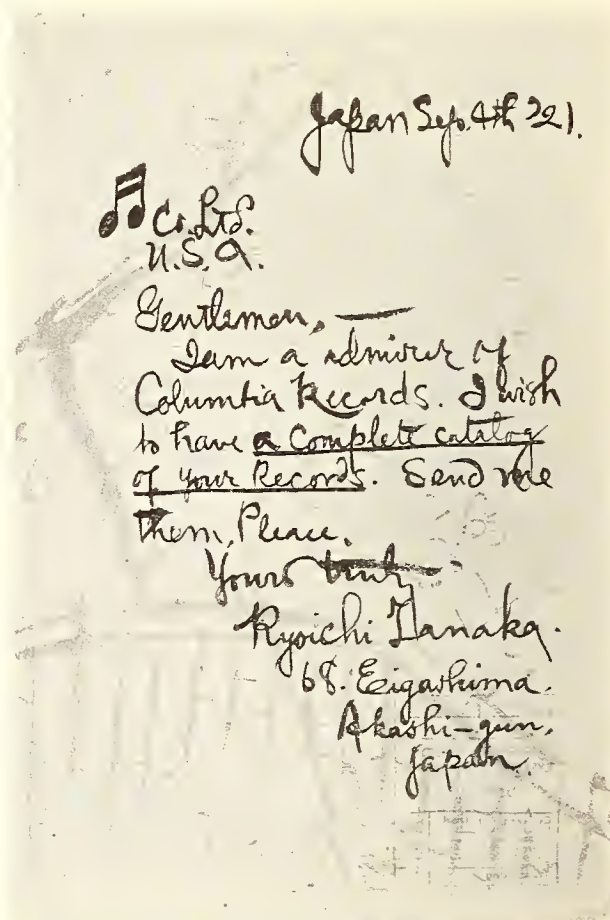 Japan Sep. 4th '21.
♫ Co. Ltd.
U.S.A.
Gentlemen, —
I am a admirer of
Columbia Records. I wish
to have a Complete catalog
of your Records. Send me
them, Pleace.
Yours truly
Ryoichi Tanaka.
68. Eigashima.
Akashi-gun,
Japan.